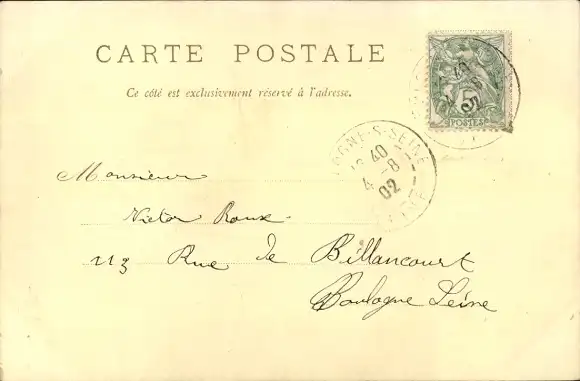 CARTE POSTALE
Ce côté est exclusivement réservé à l'adresse.
5
POSTES
OGNE-S-SEINE
40
4 -8
02
Monsieur
Victor Roux
113 Rue de Billancourt
Boulogne Seine